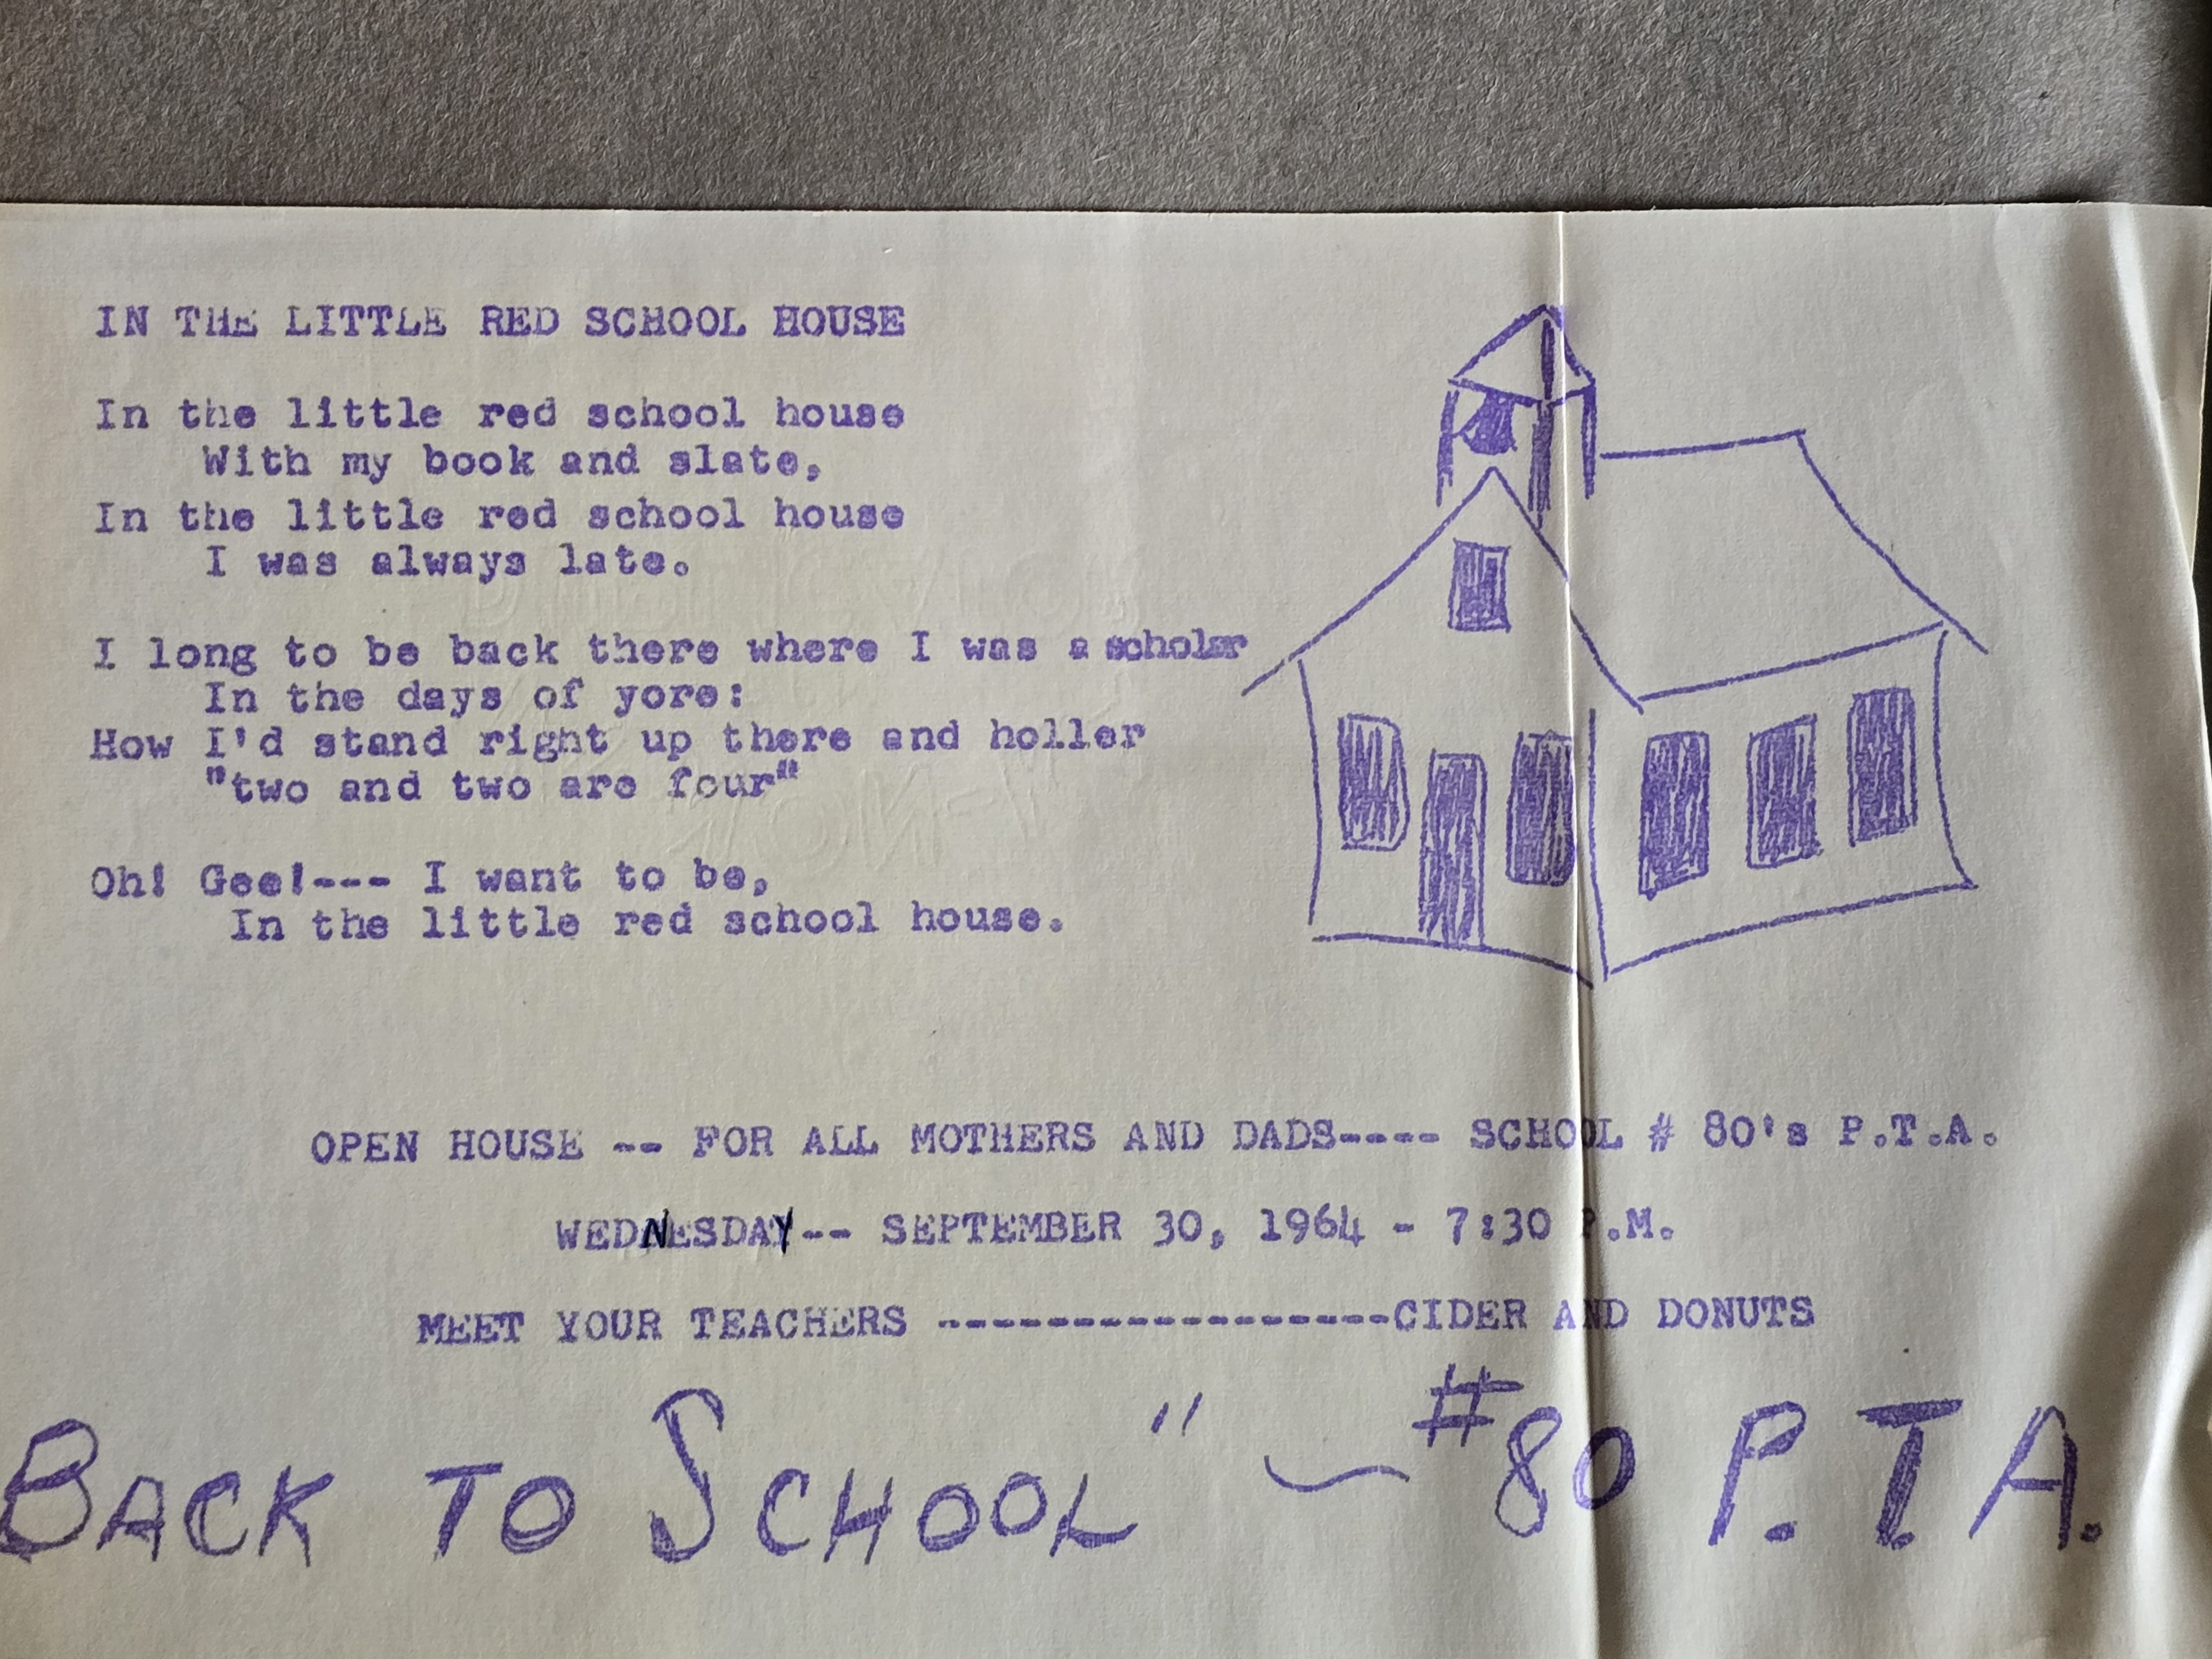 IN THE LITTLE RED SCHOOL HOUSE
In the little red school house
With my book and slate,
In the little red school house
I was always late.
I long to be back there where I was a scholar
In the days of yore:
How I'd stand right up there and holler
"two and two are four"
Oh! Gee!--- I want to be,
In the little red school house.
OPEN HOUSE -- FOR ALL MOTHERS AND DADS---- SCHOOL # 80's P.T.A.
WEDNESDAY-- SEPTEMBER 30, 1964 - 7:30 P.M.
MEET YOUR TEACHERS -----------------CIDER AND DONUTS
BACK TO SCHOOL" ~ #80 P.T.A.